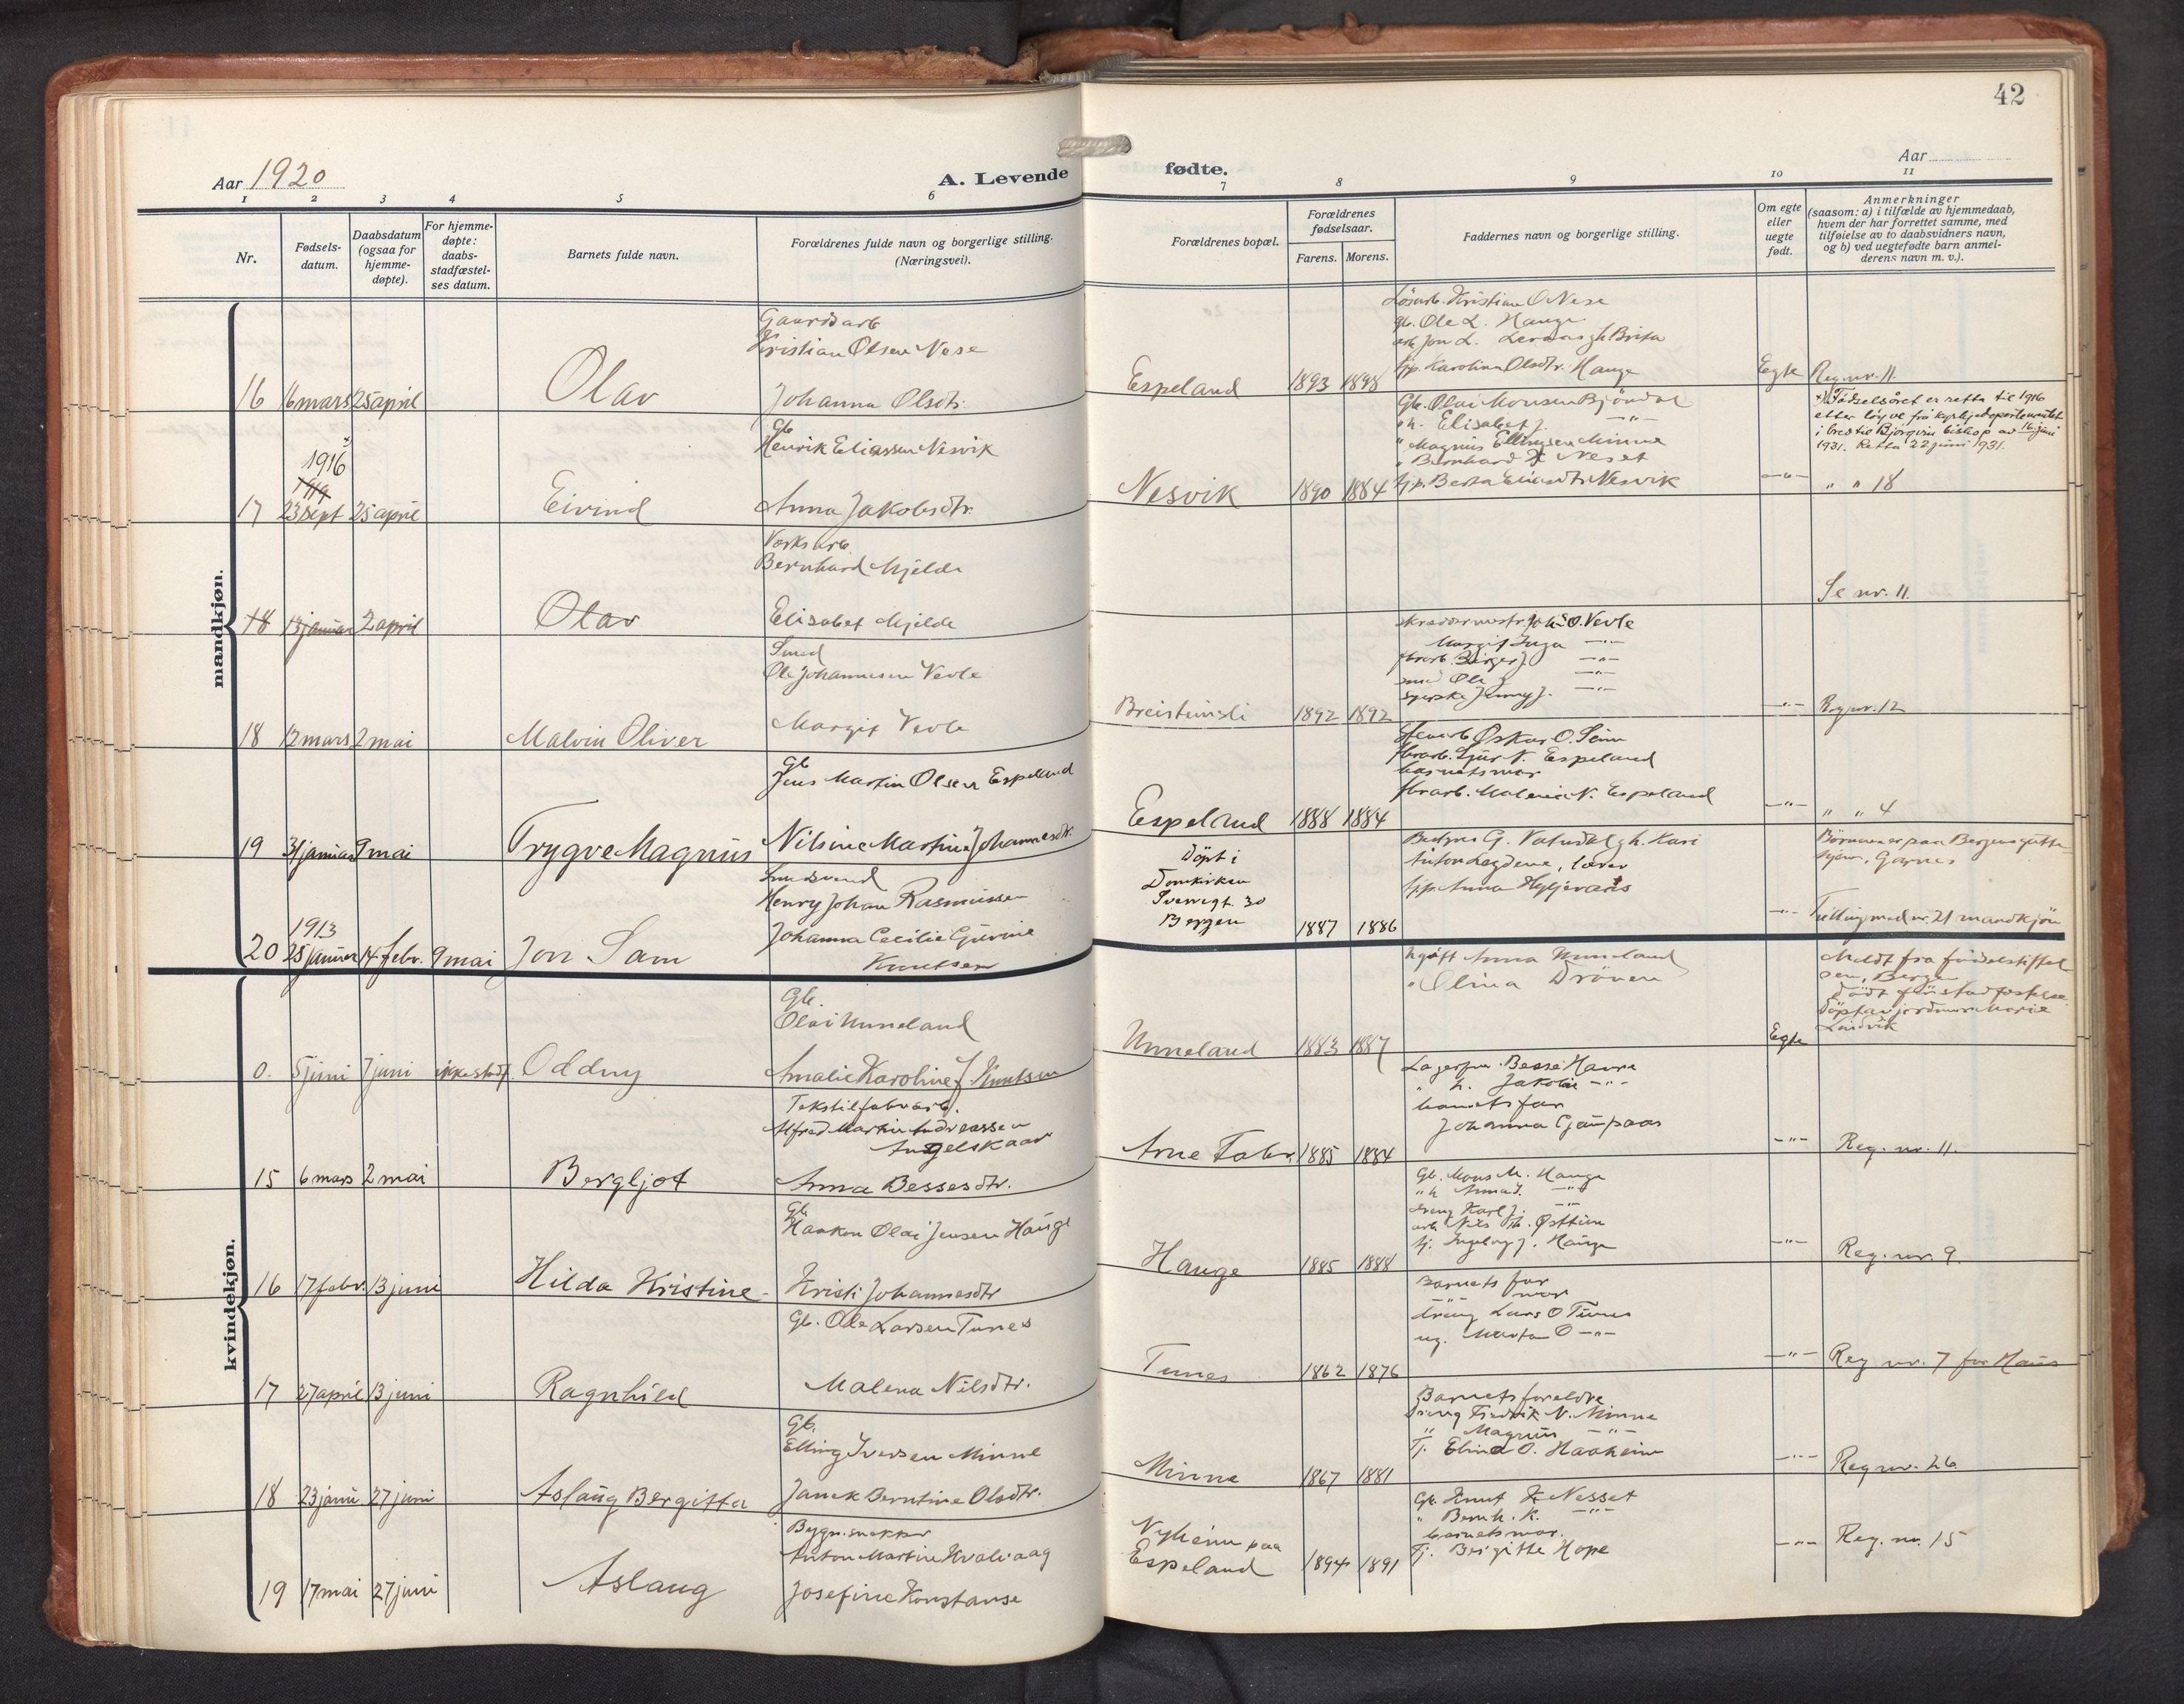 42
Aar 1920
A. Levende fødte.
Aar
1 2 3 4 5 6 7 8 9 10 11
Nr.
Fødsels-
datum.
Daabsdatum
(ogsaa for
hjemme-
døpte).
For hjemme-
døpte:
daabs-
stadfæstel-
ses datum.
Barnets fulde navn.
Forældrenes fulde navn og borgerlige stilling.
(Næringsvei).
Forældrenes bopæl.
Forældrenes
fødselsaar.
Farens. Morens.
Faddernes navn og borgerlige stilling.
Om egte
eller
uegte
født.
Anmerkninger
(saasom: a) i tilfælde av hjemmedaab,
hvem der har forrettet samme, med
tilføielse av to daabsvidners navn,
og b) ved uegtefødte barn anmel-
derens navn m. v.).
mandkjøn.
16 16 mars 25 april Olav
Gaardsarb
Kristian Olsen Nese
Johanna Olsdtr.
Espeland 1893 1898
Kristian O Nese
gb. Ole L. Hauge
arb Jon L. gh Brita
tjp. Karolina Olsdtr. Hauge
Egte Reg. nr. 11.
17 1916 1919 23 sept 25 april Eivind
Gb
Henrik Eliassen Nesvik
Anna Jakobsdtr.
Nesvik 1890 1884
Gb. Olai Monsen Bjöndal
h. Elisabet J. -"-
" Magnus Ellingsen Minne
" Bernhard K Neset
tjp. Berta Eliasdtr Nesvik
-"-
x) Födselsåret er retta til 1916
etter löyve frå kyrkjedepartementet
i brev til Björgvin biskop av 16. juni
1931. Retta 22 juni 931.
" " 18
18 13 januar 2 april Olav
Verksarb.
Bernhard Mjelde
Elisabet Mjelde
Se nr. 11.
18 12 mars 2 mai Malvin Oliver
Smed
Ole Johannesen Vevle
Margit Vevle
Breistunsli 1892 1892
O. Vevle
Margit Inga -"-
fbrarb. Birger J -"-
smed Ole J -"-
syerske Jenny J. -"-
-"- Reg. nr. 12
19 31 januar 9 mai Trygve Magnus
Gb
Jens Martin Olsen Espeland
Nilsine Martine Johannesdtr.
Espeland 1888 1884
Oskar O. Seim
fbrarb. Sjur N. Espeland
barnets mor
fbrarb. Malena N. Espeland
-"- " " 4
20 1913 25 januar 14 febr. 9 mai Jon Sam
Smedsvend
Henry Johan Rasmussen
Johanna Cecilie Gurine
Knutsen
Döpt i
Domkirken
Sverresgt. 30
Bergen
1887 1886
Bestyrer G. Vatnedal gh. Kari
Anton Legdene, lærer
tjp. Anna
-"-
Börnene er paa Bergens gutte-
hjem, Garnes
Tvilling med nr. 21 mandkjön
kvindekjøn.
0. 5 juni 7 juni ikke stadf. Oddny
Gb.
Olai Unneland
Amalie Karoline J. Knutsen
Unneland 1883 1887
ugift Anna Unneland
" Olina Dröven
Egte
Meldt fra födselsstiftel
sen, Bergen
Död för stadfestelse
Döpt av jordmor Marie
Leidvik
15 6 mars 2 mai Bergljot
Tekstilfabrarb.
Alfred Martin Andreassen
Angelskaar
Anna Bessesdtr.
Arne Fabr. 1885 1884
Lagerfor. Besse Haure
" h. Jakobie -"-
barnets far
Johanna Gjaupaas
-"- Reg. nr. 11.
16 17 febr. 13 juni Hilda Kristine
Gb.
Haakon Olai Jensen Hauge
Kristi Johannesdtr
Hauge 1885 1888
Gb. Mons M. Hauge
" h Anna J. -"-
dreng Karl J. -"-
arb Nils Th. Østtun
tj. Ingeborg J. Hauge
-"- Reg. nr. 9.
17 27 april 13 juni Ragnhild
Gb. Ole Larsen Tunes
Malena Nilsdtr.
Tunes 1862 1876
Barnets far
-"- mor
dreng Lars O Tunes
ug. Marta O -"-
-"- Reg nr. 7 for Haus
18 23 juni 27 juni Aslaug Bergitta
Gb.
Elling Iversen Minne
Janek Berntine Olsdtr.
Minne 1867 1881
Barnets foreldre
Dreng Fredrik N. Minne
" Magnus -"-
Tj. Elina O. Haaheim
-"- Reg nr. 26
19 17 mai 27 juni Aslaug
Bygn. snekker
Anton Martin Kvaleaag
Josefine Konstanse
Nyheim paa
Espeland 1894 1891
Gb. Knut K Nesset
" Bernh. K. -"-
barnets mor.
Tj. Birgitte Hope
-"- Reg. nr. 15